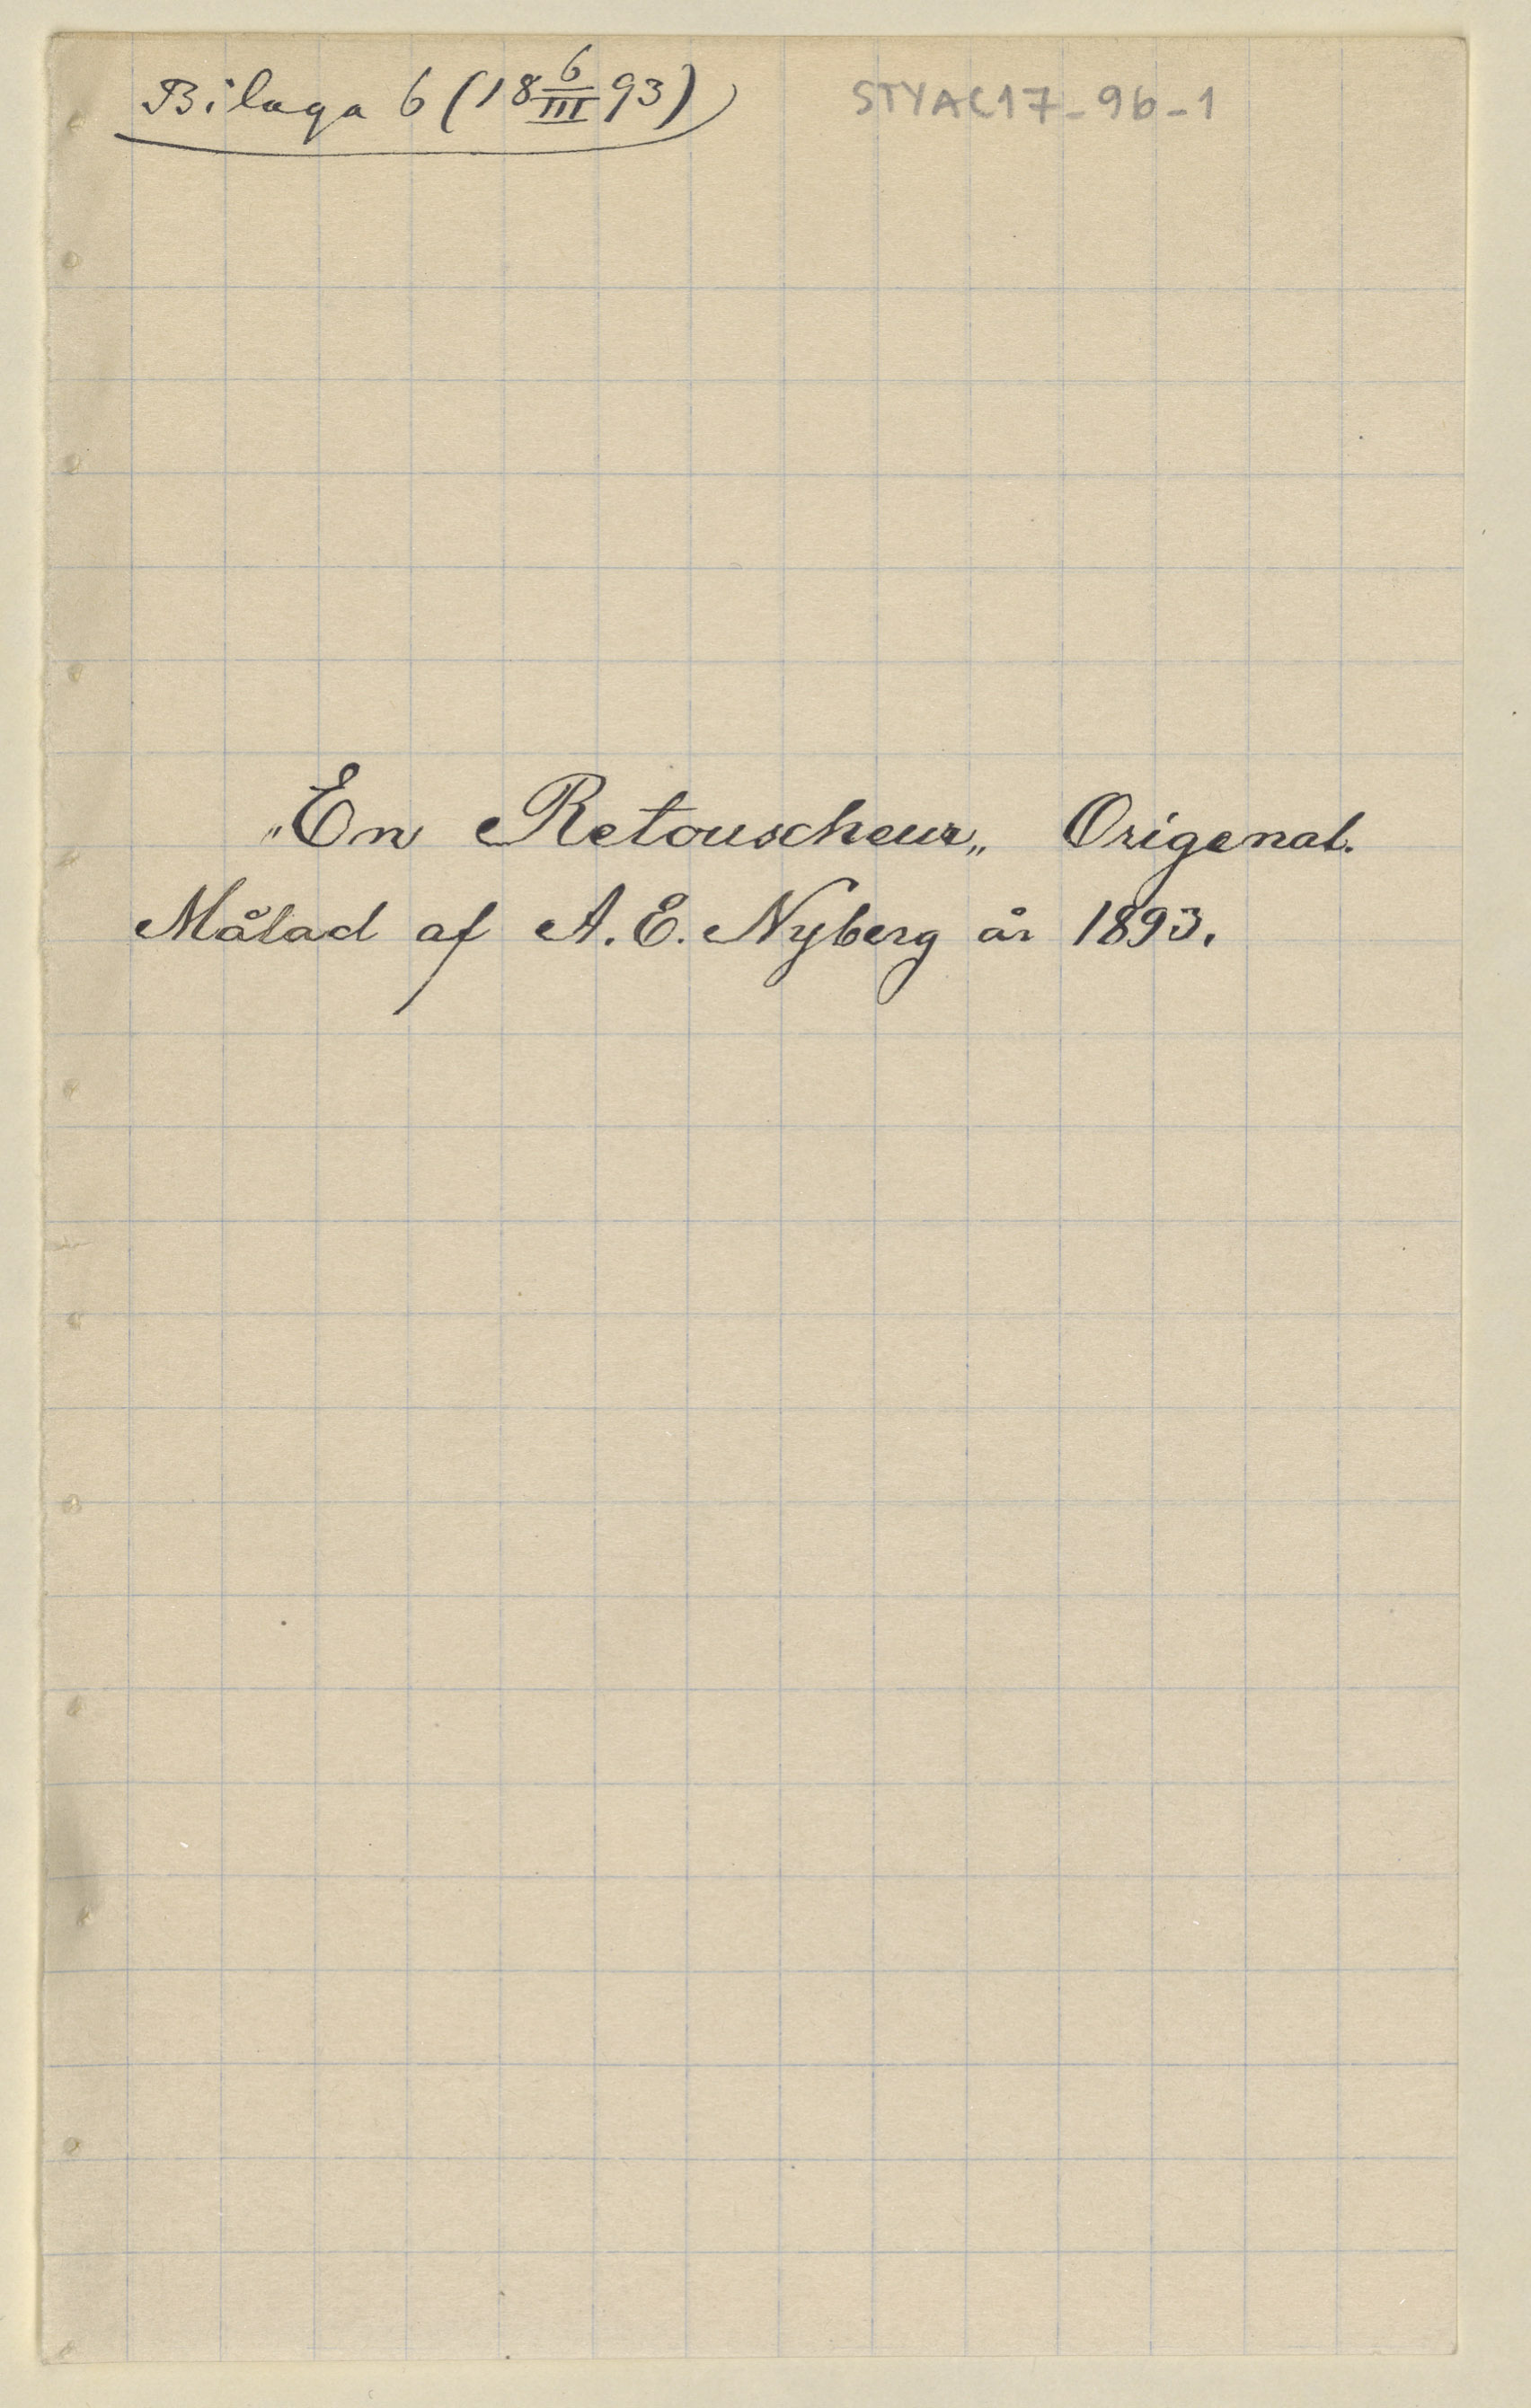 Bilaga 6 (18 6/III 93)
STYAC17-96-1
„En Retouscheur„ Origenal.
Målad af A. E. Nyberg år 1893.